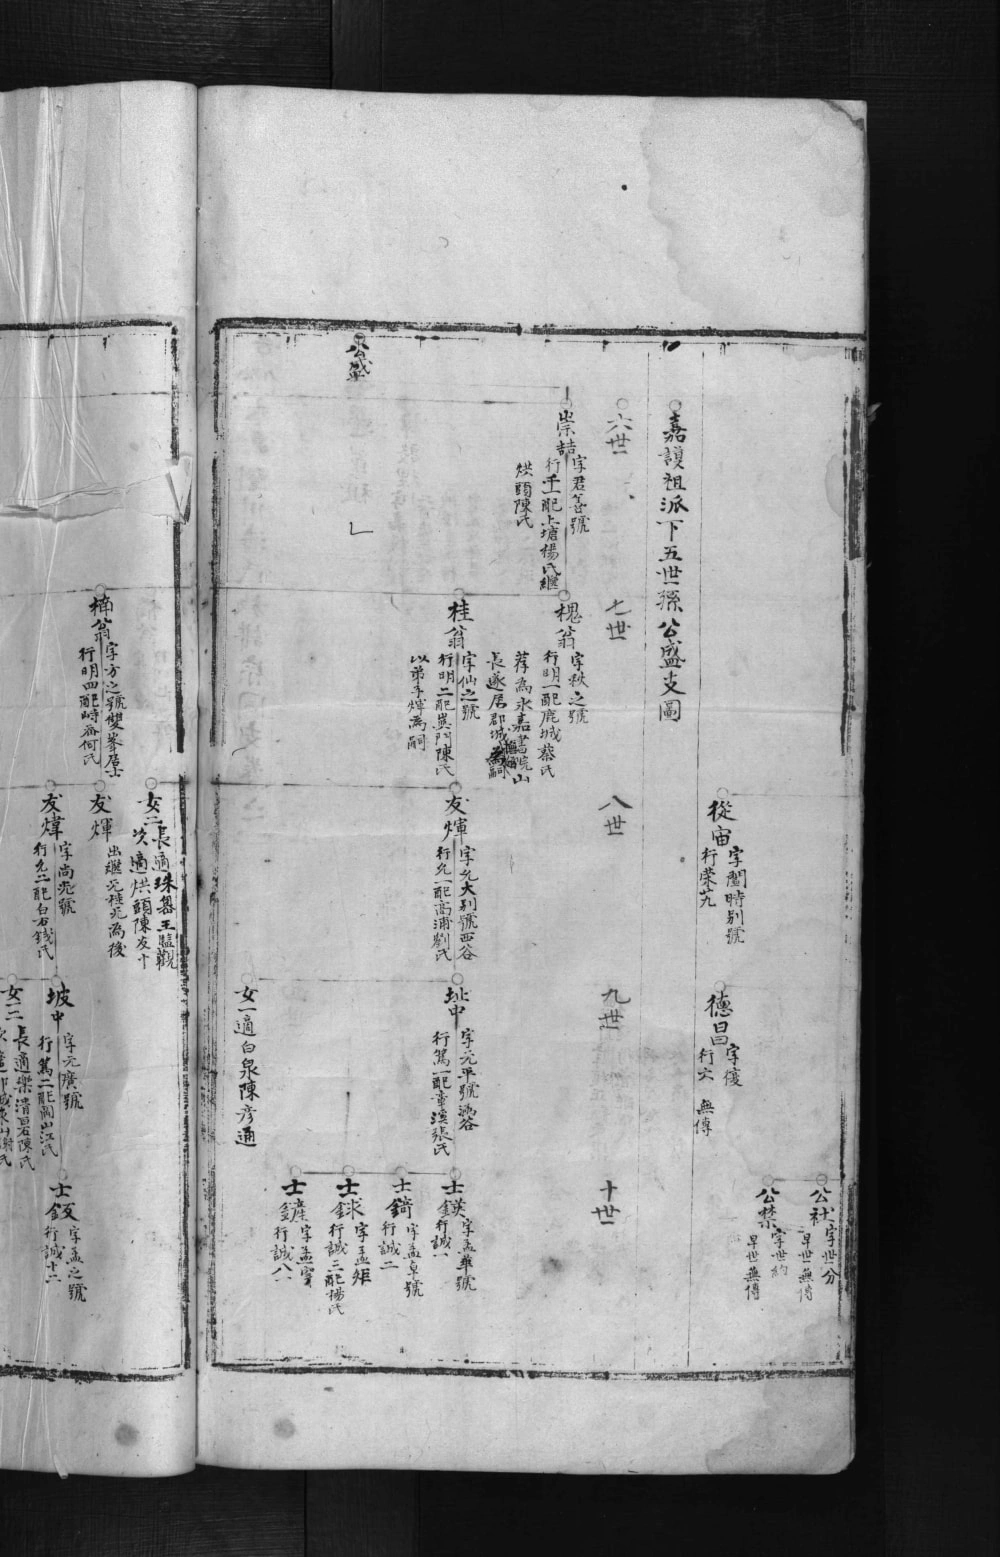 公社 字世分
早世無傳
公禁 字世約
早世無傳
從宙 字闓時別號
行榮
德昌 字復
行六 無傳
嘉護祖派下五世孫公盛支圖
六世
七世
八世
九世
十世
崇喆 字君善號
行千一配上塘楊氏繼
烘頭陳氏
槐翁 字秧之號
行明一配鹿城蔡氏
荐為永嘉書院山
長遂居郡城
桂翁 字仙之號
行明二配嶴門陳氏
以弟子煇為嗣
友煇 字允大別號西谷
行允一配高浦劉氏
址中 字元平號
行篤一配章溪張氏
士鍈 字孟華號
行誠一
士錡 字孟卓號
行誠二
士球 字孟矩
行誠三配楊氏
士鏟 字孟實
行誠八
女一適白泉陳彥通
公盛
楠翁 字方之號雙峯居士
行明四配峙斋何氏
女二 長適珠嶴王臨觀
次適烘頭陳友十
友煇
出繼元種元為後
友煒 字尚允號
行允二配白石錢氏
坡中 字元廣號
行篤二配關山江氏
女二 長適樂清呂陳氏
士鈑 字孟之號
行誠十二